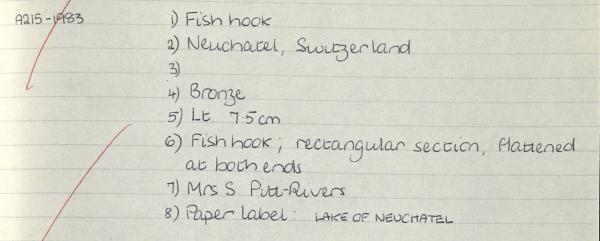 A215-1983 1) Fish hook
2) Neuchatel, Switzerland
3)
4) Bronze
5) Lt. 7.5cm
6) Fish hook; rectangular section, flattened
at both ends
7) Mrs S Pitt-Rivers
8) Paper label: LAKE OF NEUCHATEL